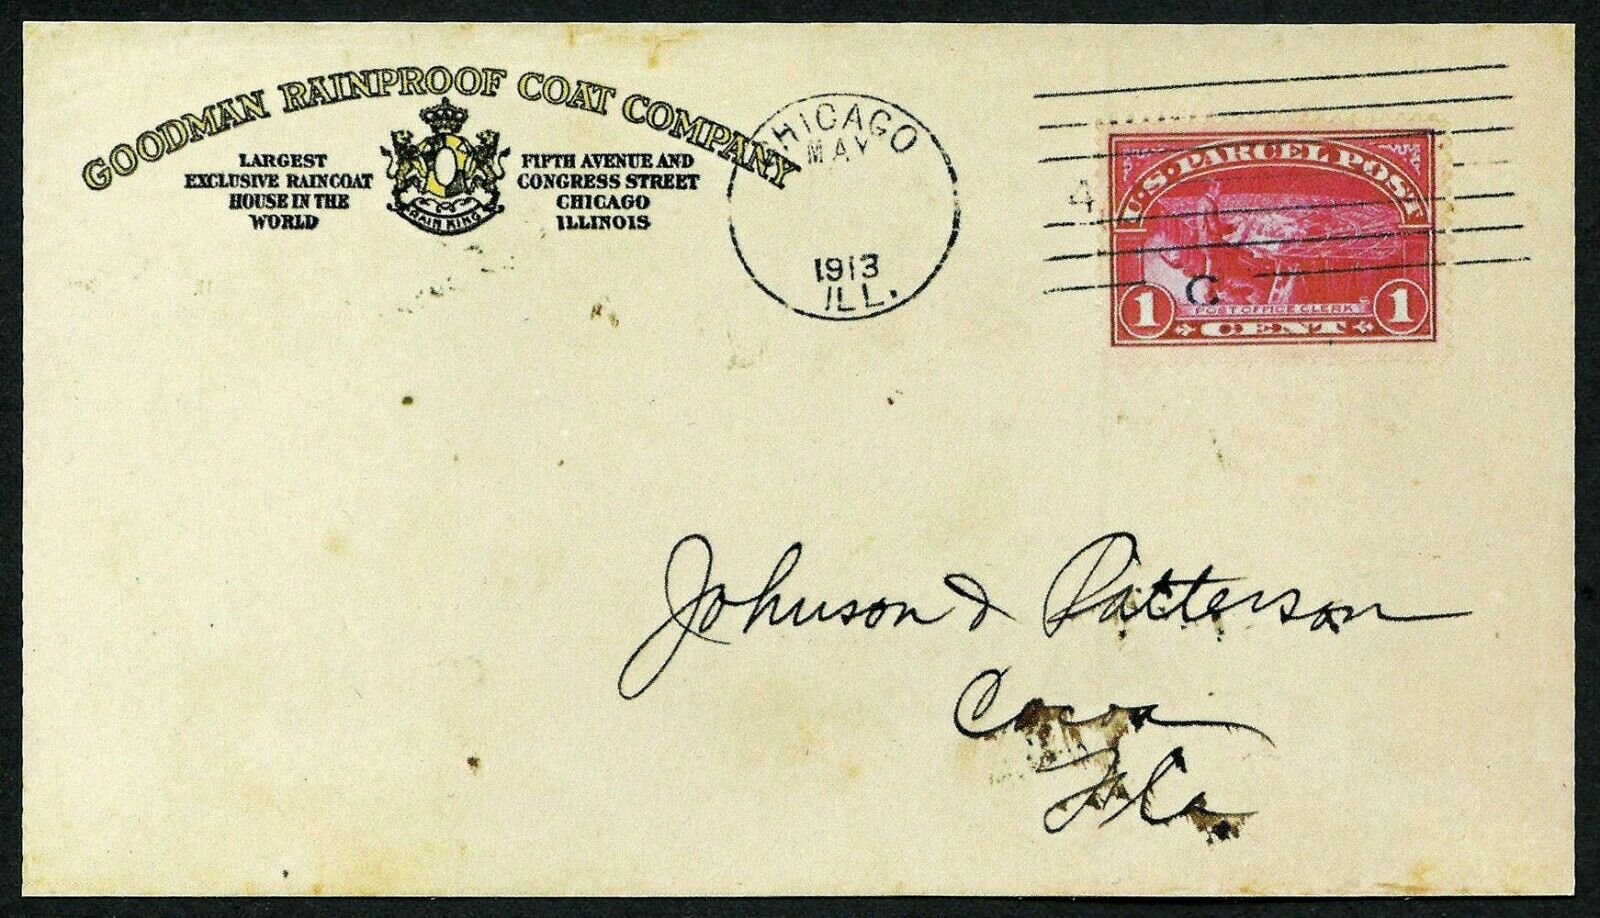 GOODMAN RAINPROOF COAT COMPANY
LARGEST
EXCLUSIVE RAINCOAT
HOUSE IN THE
WORLD
RAIN KING
FIFTH AVENUE AND
CONGRESS STREET
CHICAGO
ILLINOIS
CHICAGO
MAY
1913
ILL.
4
C
U.S. PARCEL POST
POST OFFICE CLERK
1 CENT 1
Johnson & Patterson
Cocoa
Fla